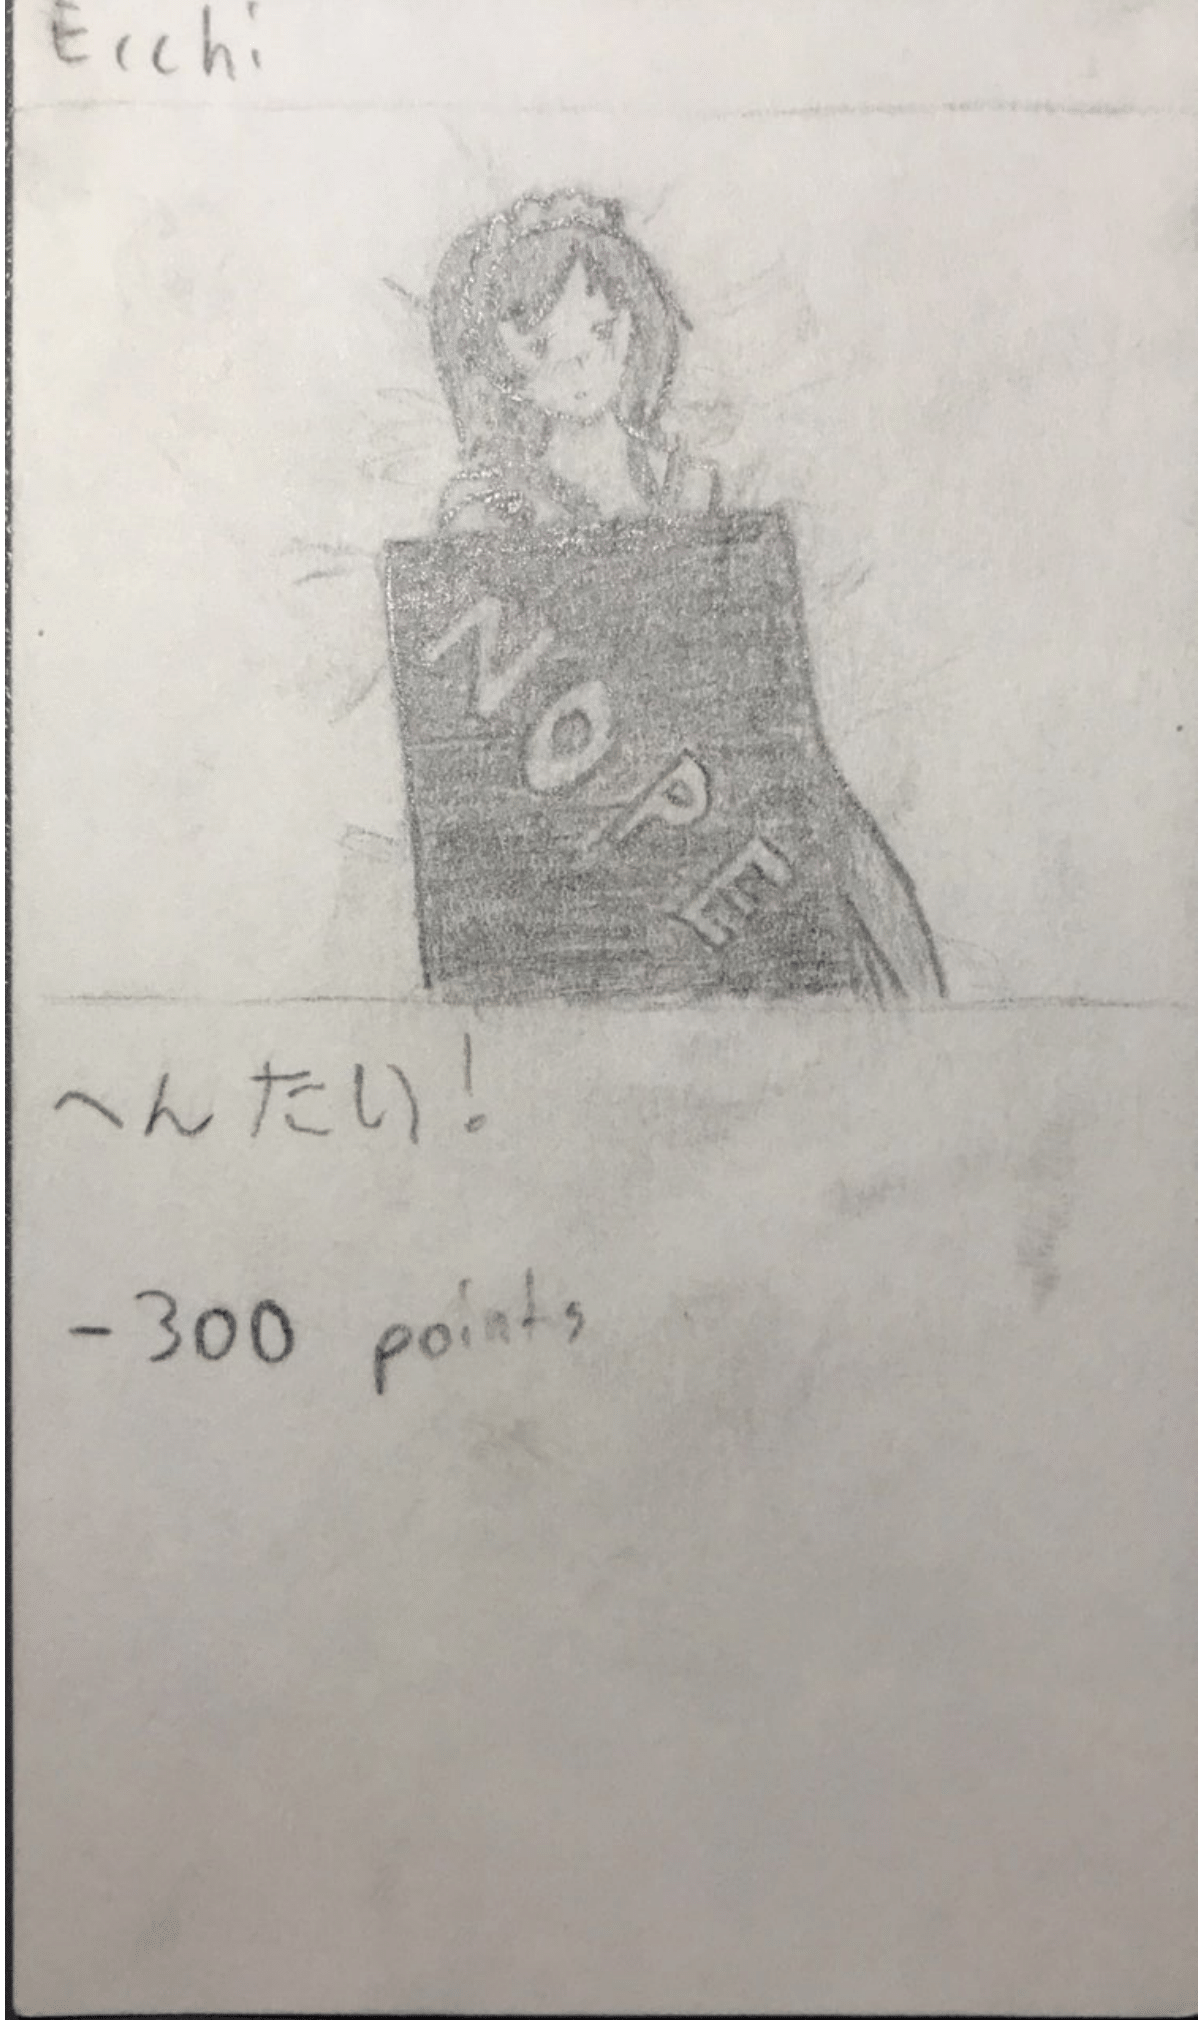 Ecchi
NOPE
へんたい!
-300 points